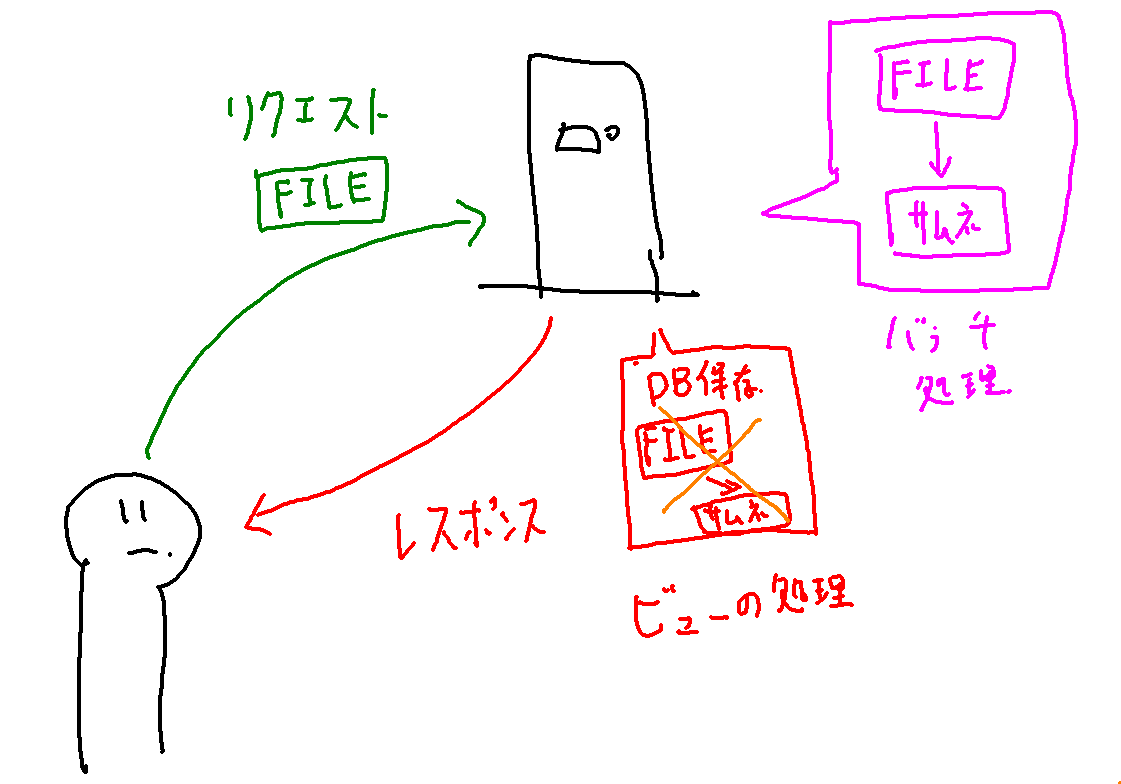 リクエスト
FILE
FILE
サムネ
バッチ
処理
DB保存
FILE
サムネ
レスポンス
ビューの処理